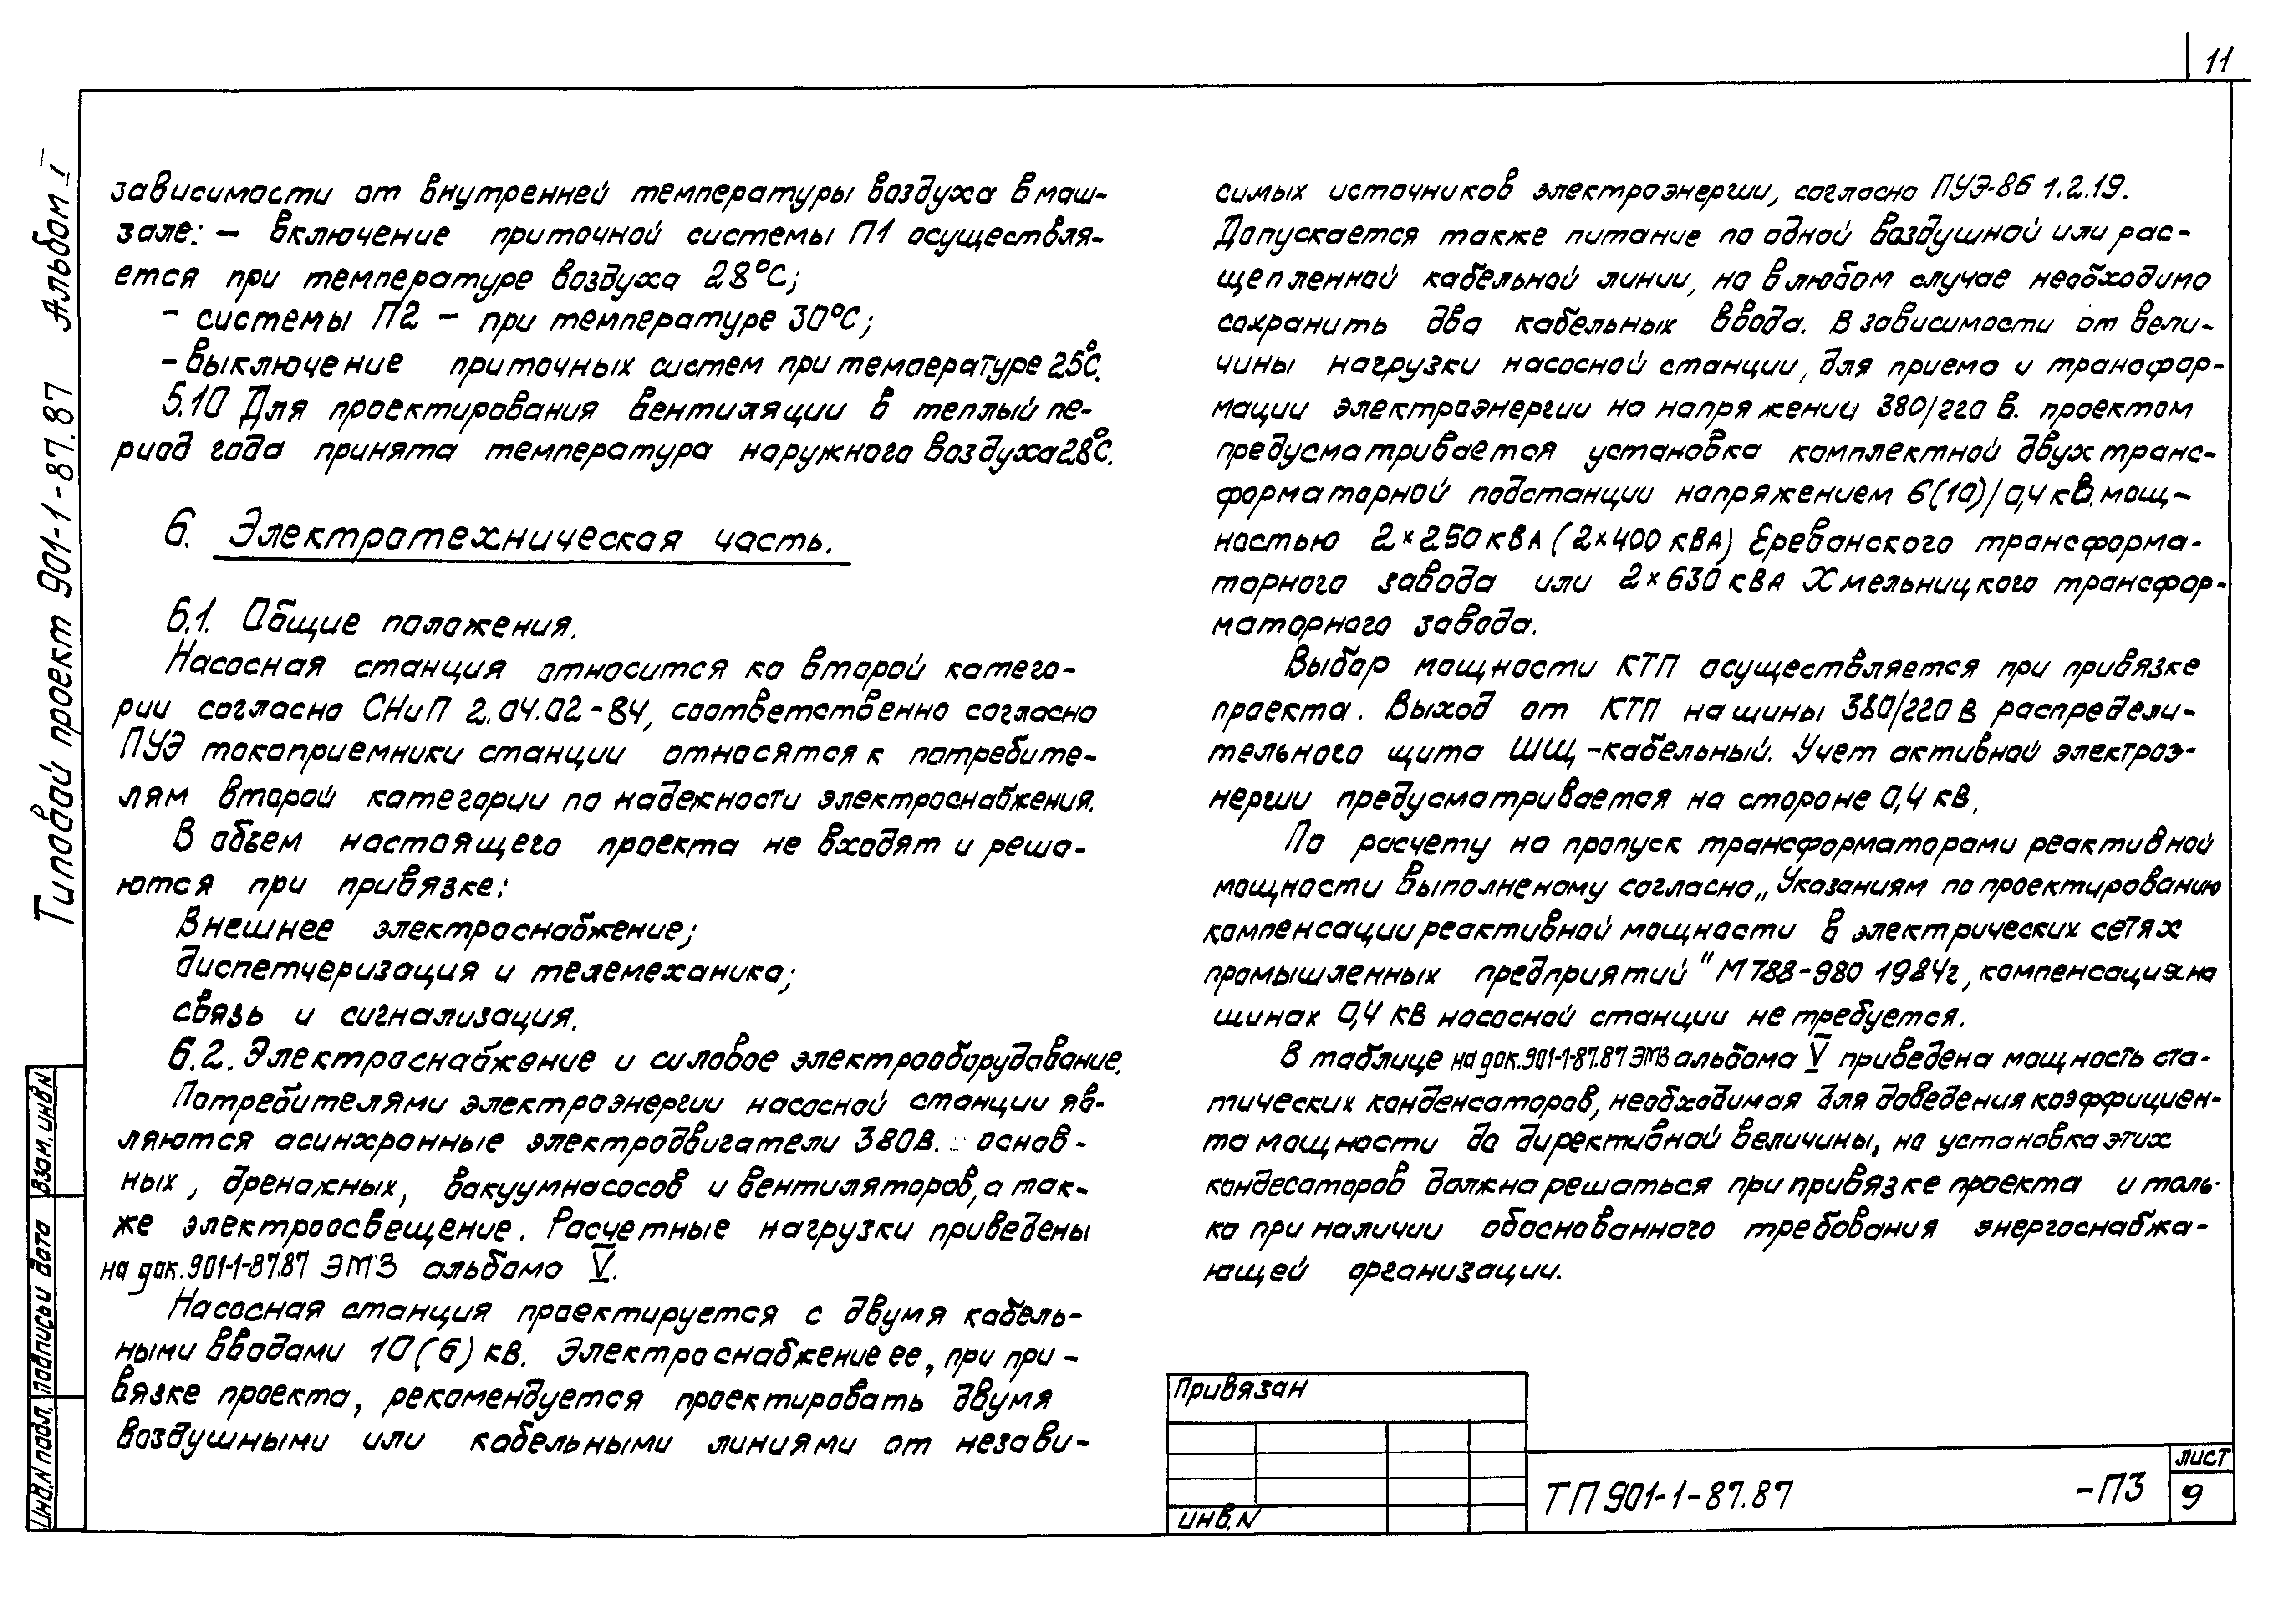 11
Типовой проект 901-1-87.87 Альбом I
зависимости от внутренней температуры воздуха в маш-
зале: — включение приточной системы П1 осуществля-
ется при температуре воздуха 28°С;
- системы П2 — при температуре 30°С;
- выключение приточных систем при температуре 25°С.
5.10 Для проектирования вентиляции в теплый пе-
риод года принята температура наружного воздуха 28°С.
6. Электротехническая часть.
6.1. Общие положения.
Насосная станция относится ко второй катего-
рии согласно СНиП 2.04.02-84, соответственно согласно
ПУЭ токоприемники станции относятся к потребите-
лям второй категории по надежности электроснабжения.
В объем настоящего проекта не входят и реша-
ются при привязке:
Внешнее электроснабжение;
диспетчеризация и телемеханика;
связь и сигнализация.
6.2. Электроснабжение и силовое электрооборудование.
Потребителями электроэнергии насосной станции яв-
ляются асинхронные электродвигатели 380в. основ-
ных, дренажных, вакуумнасосов и вентиляторов, а так-
же электроосвещение. Расчетные нагрузки приведены
на док. 901-1-87.87 ЭМ3 альбома V.
Насосная станция проектируется с двумя кабель-
ными вводами 10(6) кв. Электроснабжение ее, при при-
вязке проекта, рекомендуется проектировать двумя
воздушными или кабельными линиями от незави-
симых источников электроэнергии, согласно ПУЭ-86 1.2.19.
Допускается также питание по одной воздушной или рас-
щепленной кабельной линии, но в любом случае необходимо
сохранить два кабельных ввода. В зависимости от вели-
чины нагрузки насосной станции, для приема и трансфор-
мации электроэнергии на напряжении 380/220 в. проектом
предусматривается установка комплектной двухтранс-
форматорной подстанции напряжением 6(10)/0,4 кв. мощ-
ностью 2×250 квА (2×400 квА) Ереванского трансформа-
торного завода или 2×630 квА Хмельницкого трансфор-
маторного завода.
Выбор мощности КТП осуществляется при привязке
проекта. Выход от КТП на шины 380/220 в распредели-
тельного щита ШЩ - кабельный. Учет активной электроэ-
нергии предусматривается на стороне 0,4 кв.
По расчету на пропуск трансформаторами реактивной
мощности выполненому согласно „Указаниям по проектированию
компенсации реактивной мощности в электрических сетях
промышленных предприятий" М788-980 1984г, компенсация на
шинах 0,4 кв насосной станции не требуется.
В таблице на док. 901-1-87.87 ЭМ3 альбома V приведена мощность ста-
тических конденсаторов, необходимая для доведения коэффициен-
та мощности до директивной величины, но установка этих
кондесаторов должна решаться при привязке проекта и толь-
ко при наличии обоснованного требования энергоснабжа-
ющей организации.
Привязан
инв. N
ТП 901-1-87.87 -ПЗ
лист
9
Инв. N подл. Подпись и дата Взам. инв N